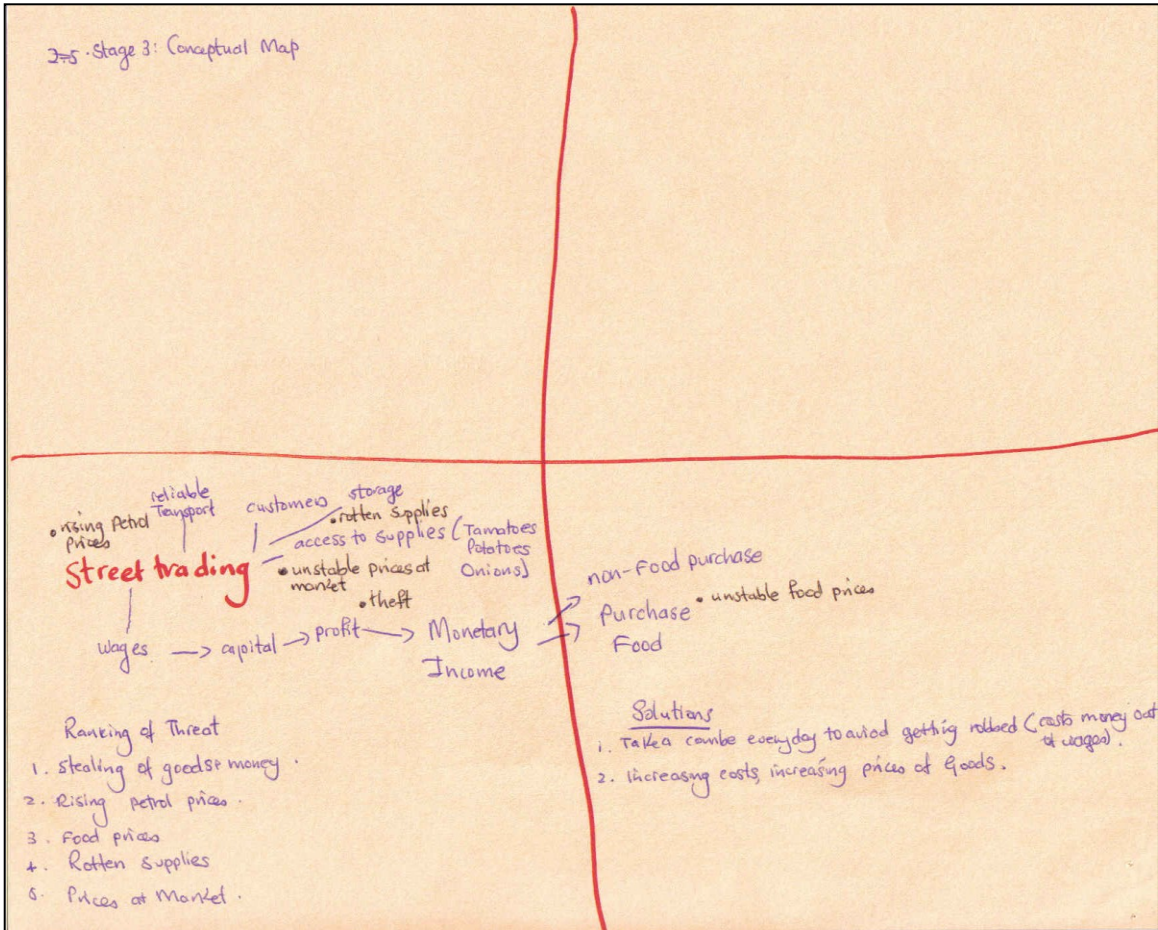 2=5. Stage 3: Conceptual Map
reliable
Transport
customers
storage
• rising Petrol
Prices
• rotten supplies
access to supplies (Tamatoes
Potatoes
Onions)
Street trading
• unstable prices at
market
• theft
wages → capital → profit → Monetary
Income
non-Food purchase
Purchase
Food
• unstable food prices
Ranking of Threat
1. Stealing of goods + money.
2. Rising petrol prices.
3. Food prices
4. Rotten supplies
5. Prices at Market.
Solutions
1. Take a combe everyday to aviod getting robbed (costs money out
of wages).
2. Increasing costs, increasing prices of Goods.